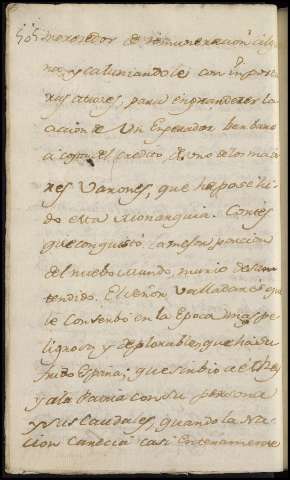 merecedor de remuneracion algu
na, y calumniandole con impostu
ras atroces, para engrandecer la
accion de Un Emperador barbaro
a costa del credito de uno de los maio
res Varones, que ha posehi
do esta Monarquia. Cortés
que conquistó la mejor porcion
del nuebo mundo, murio desaten
tendido. El Señor Valladares que
le Conserbó en la Epoca mas pe
ligrosa, y deplorable, que ha su
frido España; que sirbio a el Rey
y a la Patria con su persona
y sus Caudales, quando la Na
cion Carecia casi enteramente